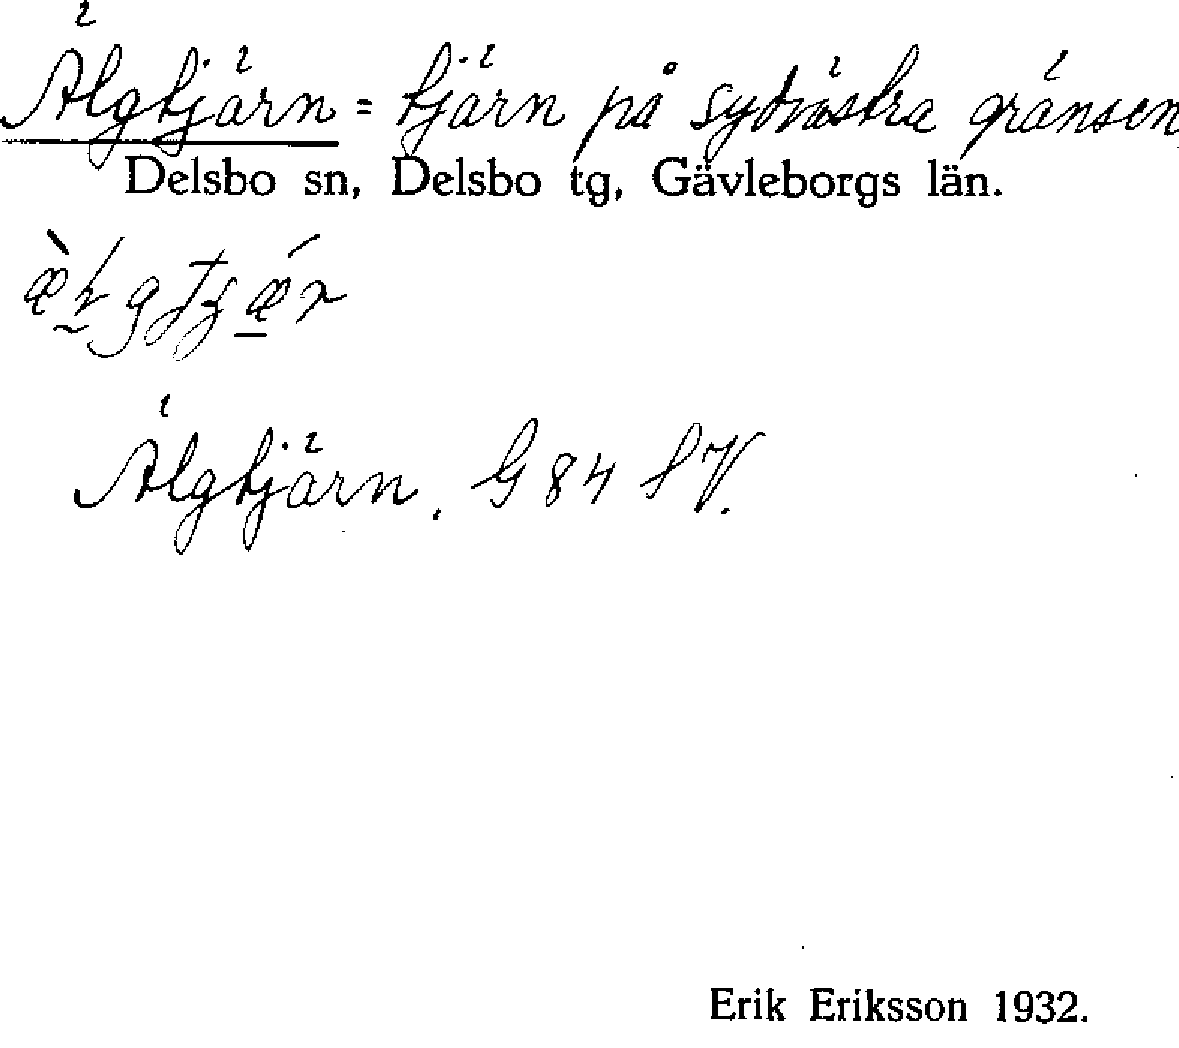 Älgtjärn = tjärn på sydvästra gränsen
Delsbo sn, Delsbo tg, Gävleborgs län.
Älgtjärn. G 84 SV.
Erik Eriksson 1932.